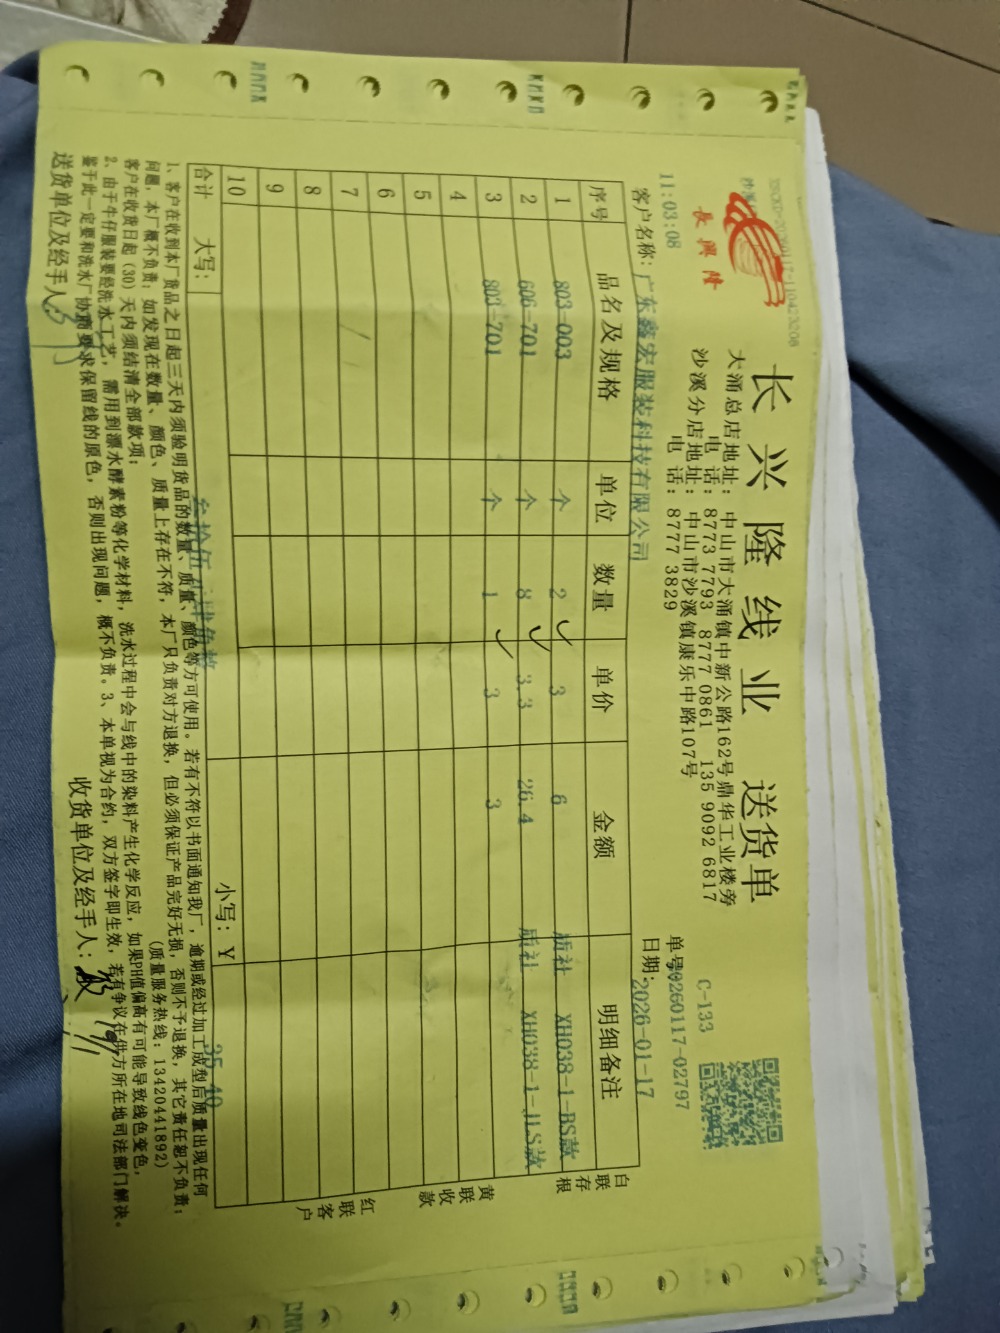 XSCKD-20260117-110423208
長興隆
长兴隆线业 送货单
大涌总店地址：中山市大涌镇中新公路162号鼎华工业楼旁
电 话：8773 7793 8777 0861 135 9092 6817
沙溪分店地址：中山市沙溪镇康乐中路107号
电 话：8777 3829
C-133
单号20260117-02797
11:03:08
客户名称：广东鑫宏服装科技有限公司 日期：2026-01-17
序号 品名及规格 单位 数量 单价 金额 明细备注
1 803-003 个 2 3 6 质社 XH038-1-BS款
2 606-701 个 8 3.3 26.4 质社 XH038-1-JLS款
3 803-701 个 1 3 3
4
5
6
7
8
9
10
合计 大写： 叁拾伍元肆角整 小写：￥ 35.40
白联存根
黄联收款
红联客户
1、客户在收到本厂货品之日起三天内须验明货品的数量、质量、颜色等方可使用。若有不符以书面通知我厂，逾期或经过加工成型后质量出现任何
问题，本厂概不负责；如发现在数量、颜色、质量上存在不符，本厂只负责对方退换，但必须保证产品完好无损，否则不予退换，其它责任恕不负责；
客户在收货日起（30）天内须结清全部款项； (质量服务热线：13420441892)
2、由于牛仔服装要经洗水工艺，需用到漂水酵素粉等化学材料，洗水过程中会与线中的染料产生化学反应，如果PH值偏高有可能导致线色变色，
鉴于此一定要和洗水厂协商要求保留线的原色，否则出现问题，概不负责。3、本单视为合约，双方签字即生效，若有争议在供方所在地司法部门解决。
送货单位及经手人： 收货单位及经手人：